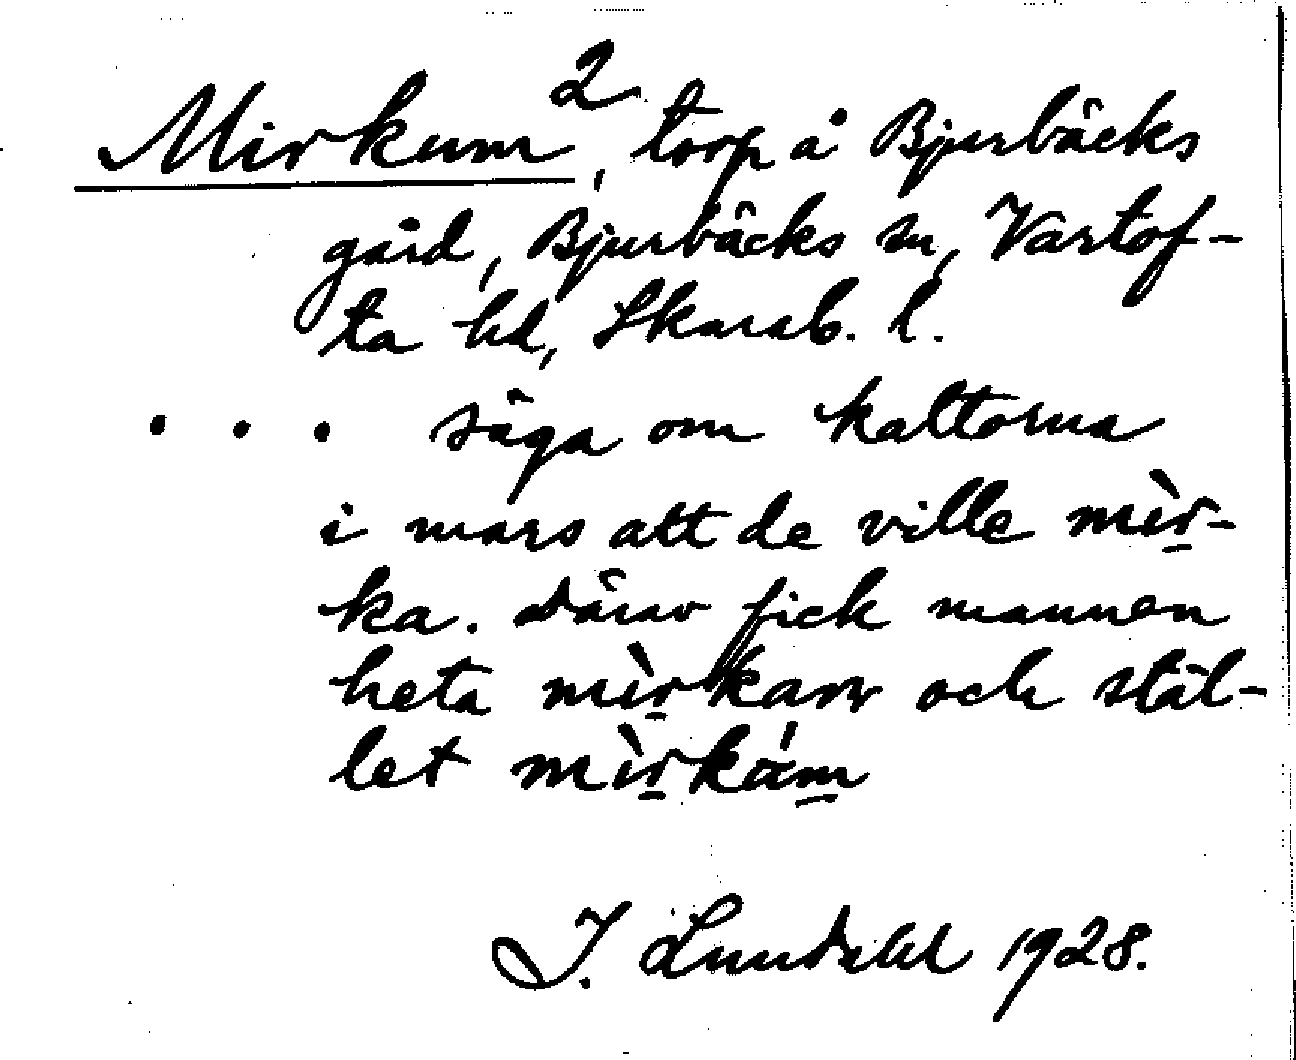 Mirkum², torp å Bjurbäcks
gård, Bjurbäcks sn, Vartof-
ta hd, Skarab. l.
. . . säga om kattorna
i mars att de ville mìr-
ka. Därav fick mannen
heta mìrkarr och stäl-
let mìrkám
I. Lundahl 1928.